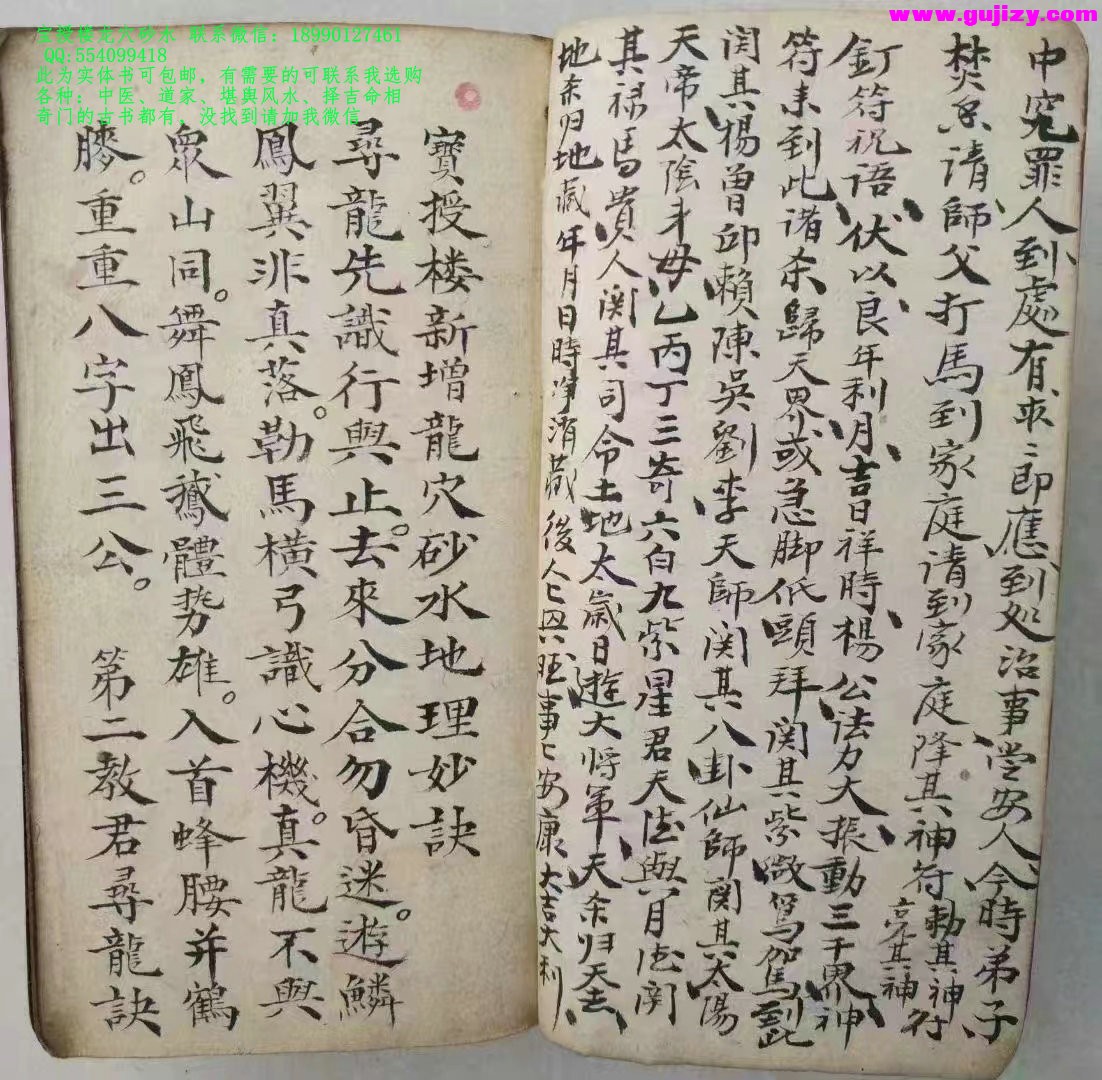 www.gujizy.com
宝授楼龙穴砂水 联系微信：18990127461
QQ:554099418
此为实体书可包邮，有需要的可联系我选购
各种：中医、道家、堪舆风水、择吉命相
奇门的古书都有，没找到请加我微信
中究罪人到處有求〻即應到处治事堂安人今時弟子
焚香請師父打馬到家庭請到家庭降其神符勅其神符
亮其神
釘符祝語伏以良年利月吉日祥時楊公法力大振動三千界神
符未到此诸杀歸天界或急脚低頭拜関其紫微鸞駕到此
関其楊曾邱賴陳吳劉李天師関其八卦仙師関其太陽
天帝太陰才母乙丙丁三奇六白九紫星君天德與月德関
其禄馬貴人関其司令土地太歲日遊大将軍天杀归天去
地杀归地藏年月日時净消藏後人〻興旺事〻安康大吉大利
寶授楼新增龍穴砂水地理妙訣
尋龍先識行與止。去來分合勿昏迷。遊鱗
鳳翼非真落。勒馬橫弓識心機。真龍不與
眾山同。舞鳳飛鵝體势雄。入首蜂腰并鶴
膝。重重八字出三公。 第二教君尋龍訣